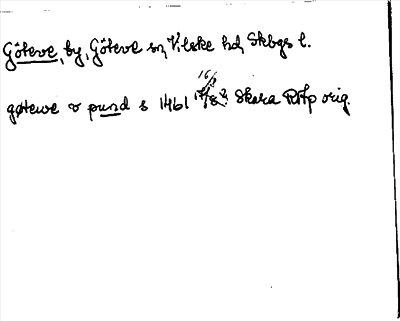 Göteve, by, Göteve sn, Vilske hd, Skbgs l.
gøtewe v pund s 1461 16/8 Skara RAp orig.